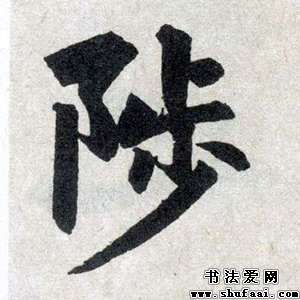 陟
书法爱网
www.shufaai.com